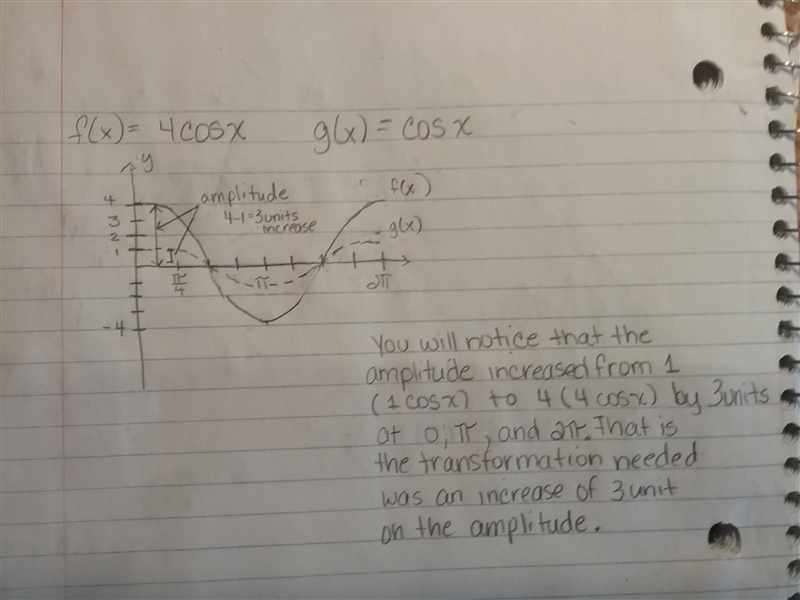 f(x) = 4cosx g(x) = cosx
y
4
3
2
1
-4
amplitude
4-1=3units
increase
f(x)
g(x)
π/4
π
2π
You will notice that the
amplitude increased from 1
(1cosx) to 4 (4cosx) by 3units
at 0, π, and 2π. That is
the transformation needed
was an increase of 3unit
on the amplitude.